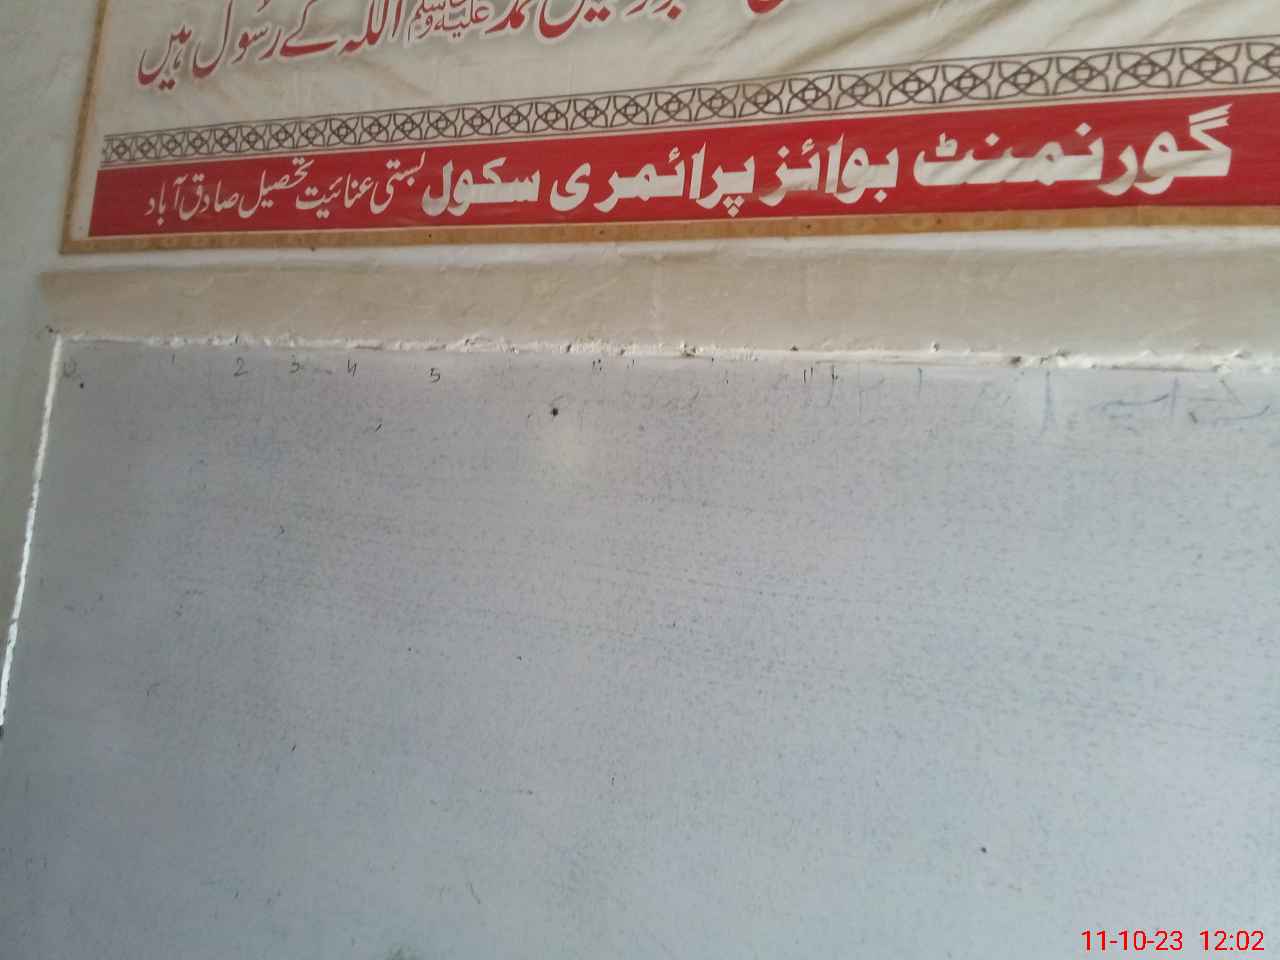 محمد ﷺ اللہ کے رسول ہیں
گورنمنٹ بوائز پرائمری سکول بستی عنائیت تحصیل صادق آباد
2 3 4 5
11-10-23 12:02